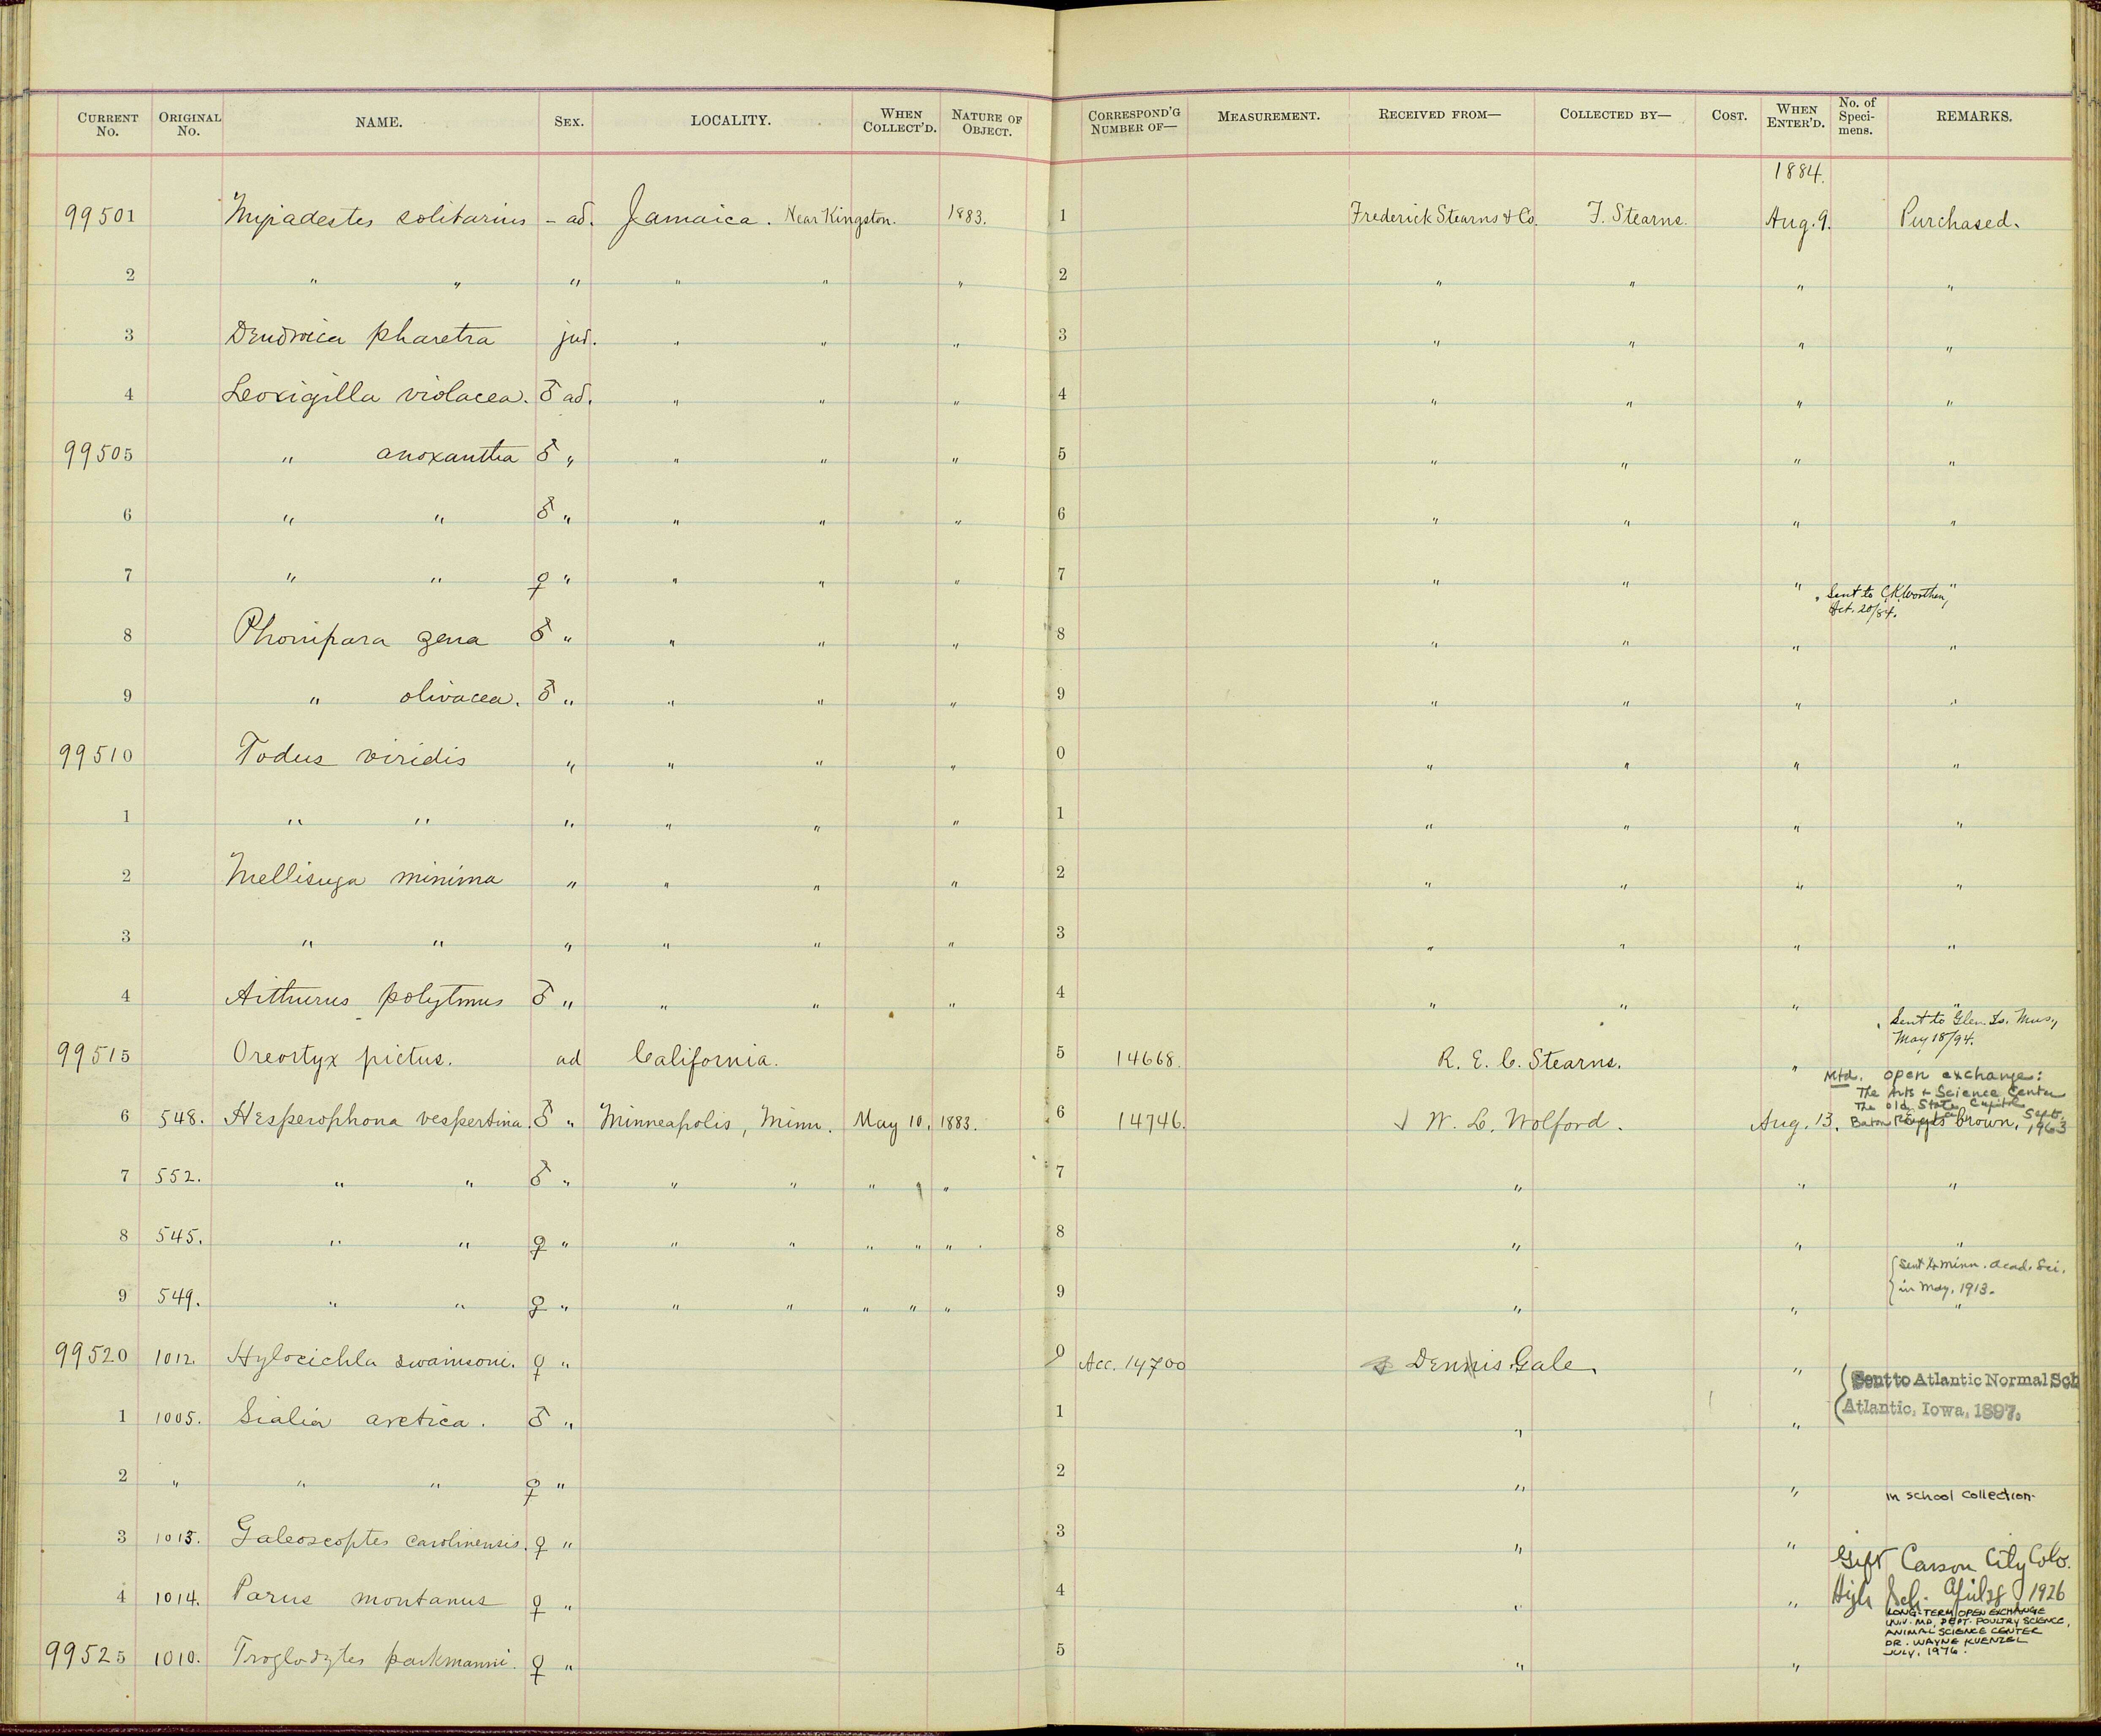 CURRENT No. ORIGINAL No. NAME. SEX. LOCALITY. WHEN COLLECT'D. NATURE OF OBJECT. CORRESPOND'G NUMBER OF— MEASUREMENT. RECEIVED FROM— COLLECTED BY— COST. WHEN ENTER'D. No. of Specimens. REMARKS.
1884.
99501 Myiadestes solitarius - ad. Jamaica. Near Kingston. 1883. 1 Frederick Stearns & Co. F. Stearns. Aug. 9. Purchased.
2 " " " " " " 2 " " " "
3 Dendroica pharetra juv. " " " 3 " " " "
4 Loxigilla violacea. ♂ ad. " " " 4 " " " "
99505 " anoxantha ♂ " " " " 5 " " " "
6 " " ♂ " " " " 6 " " " "
7 " " ♀ " " " " 7 " " " "
Sent to C.K. Worthen,
Oct. 20/84.
8 Phonipara zena ♂ " " " " 8 " " " "
9 " olivacea. ♂ " " " " 9 " " " "
99510 Todus viridis " " " " 0 " " " "
1 " " " " " " 1 " " " "
2 Mellisuga minima " " " " 2 " " " "
3 " " " " " " 3 " " " "
4 Aithurus polytmus ♂ " " " " 4 " " " "
Sent to Glen. Is. Mus.,
May 18/94.
99515 Oreortyx pictus. ad California. 5 14668. R. E. C. Stearns. "
Mtd. open exchange:
The Arts & Science Center
The Old State Capitol
Baton Rouge, La. Sept. 1963
6 548. Hesperophona vespertina. ♂ " Minneapolis, Minn. May 10, 1883. 6 14746. W. L. Wolford. Aug. 13. Eyes brown.
7 552. " " ♂ " " " " " 7 " " "
8 545. " " ♀ " " " " " " 8 " " "
Sent to Minn. Acad. Sci.
in May, 1913.
9 549. " " ♀ " " " " " " 9 " " "
99520 1012. Hylocichla swainsoni. ♀ " 0 Acc. 14700 Dennis Gale. "
Sent to Atlantic Normal Sch
Atlantic, Iowa, 1897.
1 1005. Sialia arctica. ♂ " 1 " "
2 " " " ♀ " 2 " "
in school collection.
3 1013. Galeoscoptes carolinensis. ♀ " 3 " "
Gift Carson City Colo.
High Sch. 1926
4 1014. Parus montanus ♀ " 4 " "
LONG-TERM OPEN EXCHANGE
UNIV. MD, DEPT. POULTRY SCIENCE,
ANIMAL SCIENCE CENTER
DR. WAYNE KUENZEL
JULY, 1976.
99525 1010. Troglodytes parkmanni. ♀ " 5 " "